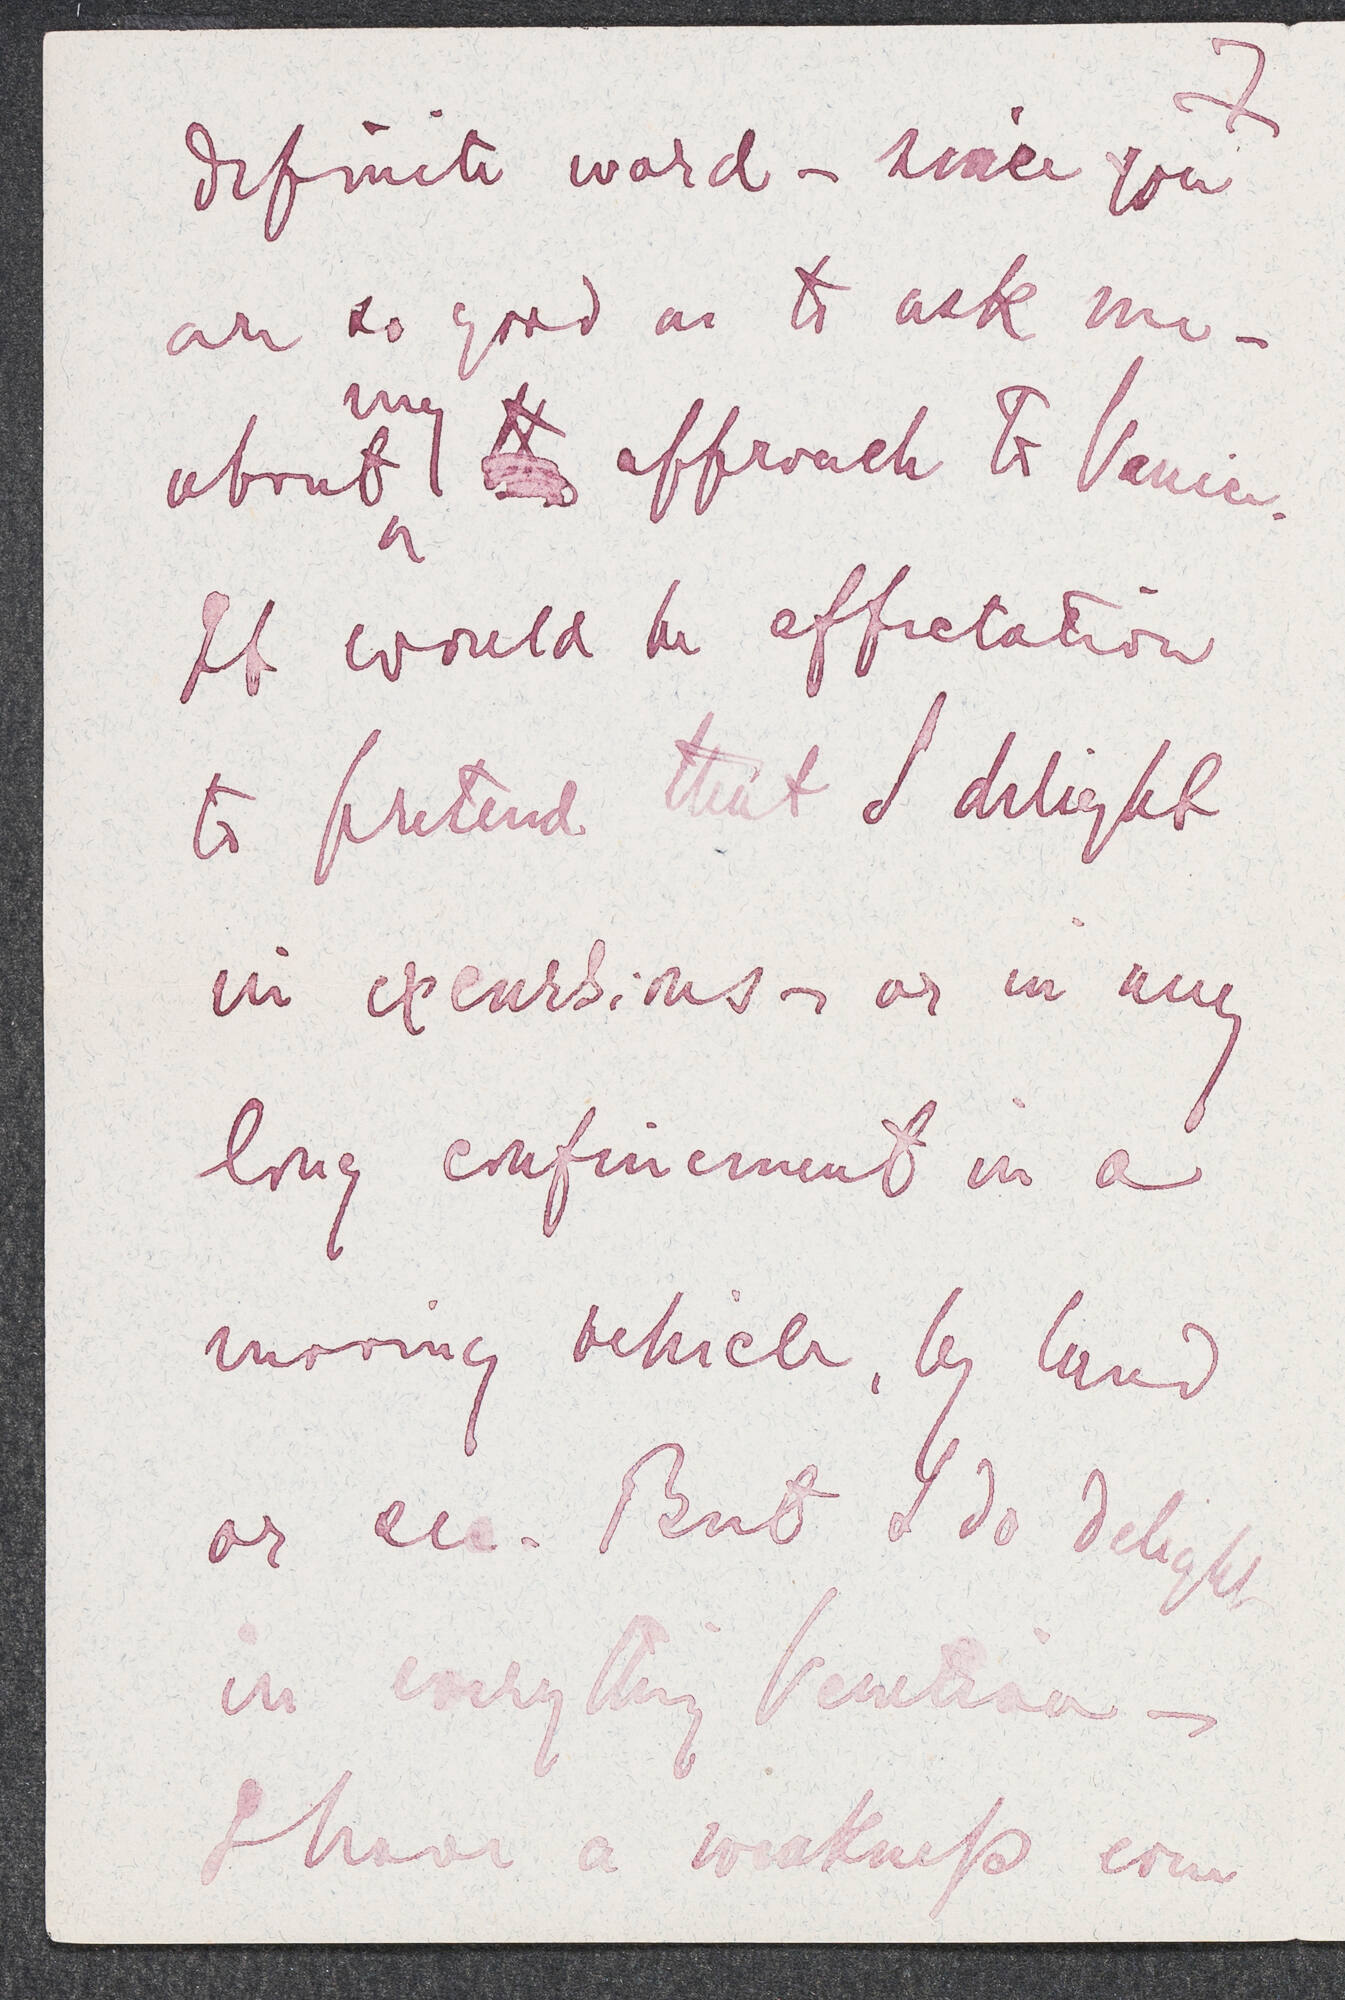 7
definite word - since you
are so good as to ask me -
about my approach to Venice.
It would be affectation
to pretend that I delight
in excursions - or in any
long confinement in a
moving vehicle, by land
or sea. But I do delight
in everything Venetian -
I have a weakness even